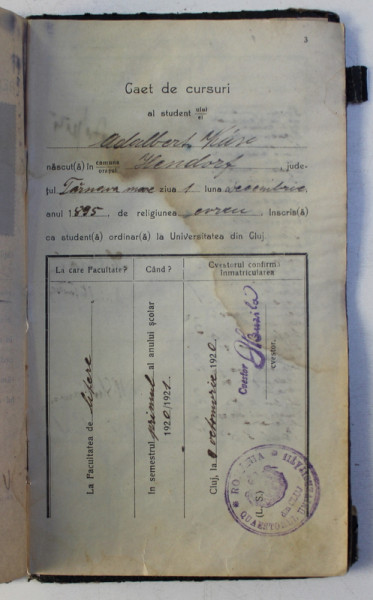 3
Caet de cursuri
al student ului
ei
Adalbert
născut(ă) în comuna
orașul
Hendorf, jude-
țul Târnava mare ziua 1 luna Decembrie,
anul 1895, de religiunea evreu. Inscris(ă)
ca student(ă) ordinar(ă) la Universitatea din Cluj.
La care Facultate?
Când?
Cvestorul confirmă
înmatricularea
La Facultatea de litere
In semestrul primul al anului școlar
1920/1921.
Cluj, la 8 octomvrie 1920.
Cvestor
cvestor.
ROMÂNIA
(L. S.)